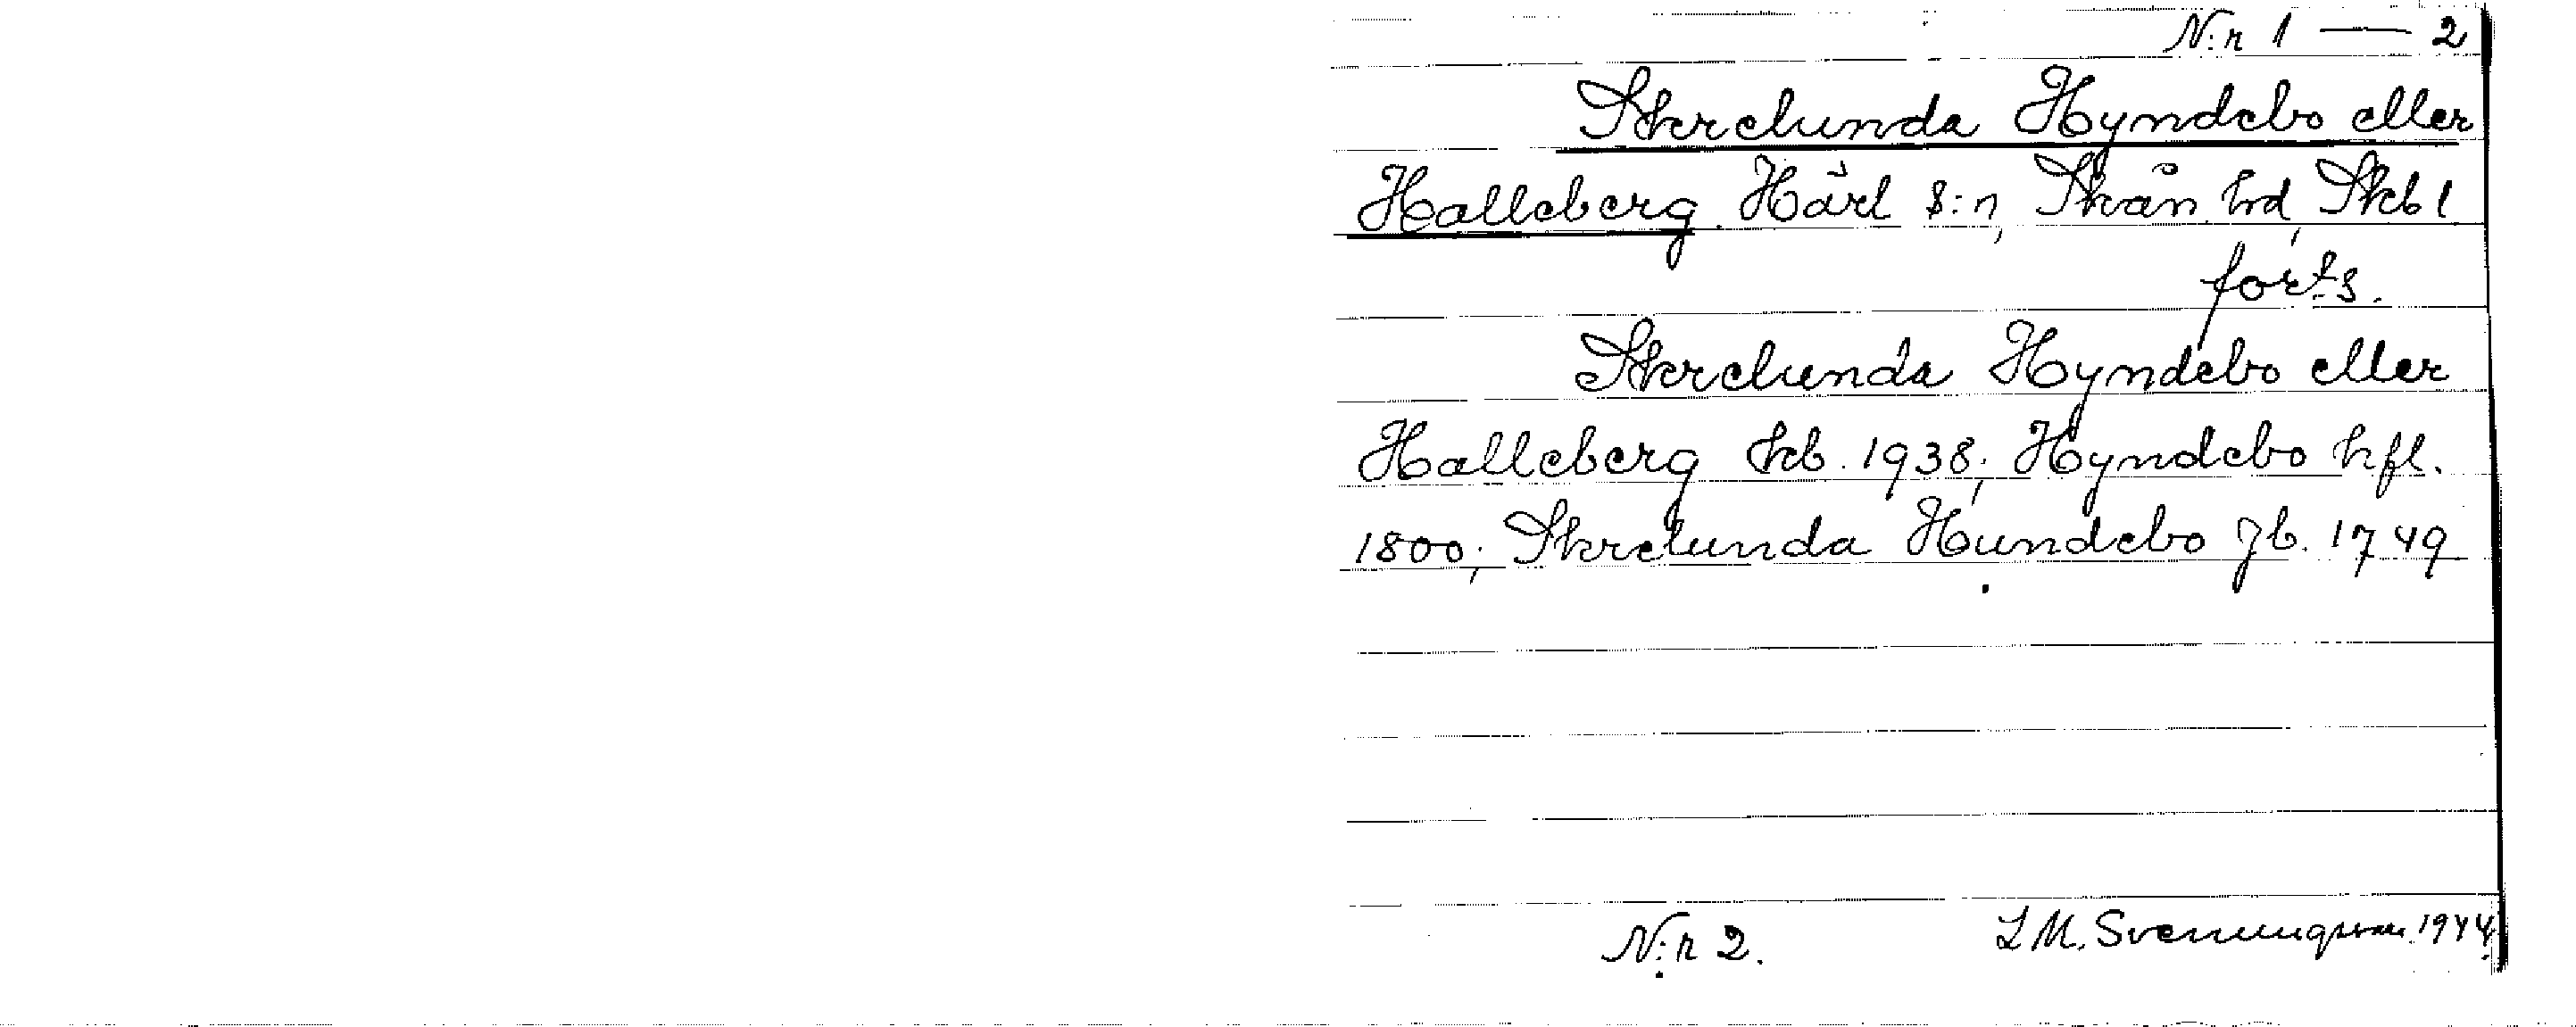 N:r 1 — 2
Skrelunda Hyndebo eller
Halleberg Härl s:n, Skån. hd, Skbl
forts.
Skrelunda Hyndebo eller
Halleberg kb. 1938; Hyndebo hfl.
1800; Skrelunda Hundebo Jb. 1749
N:r 2. L M. Svenungsson 1944.